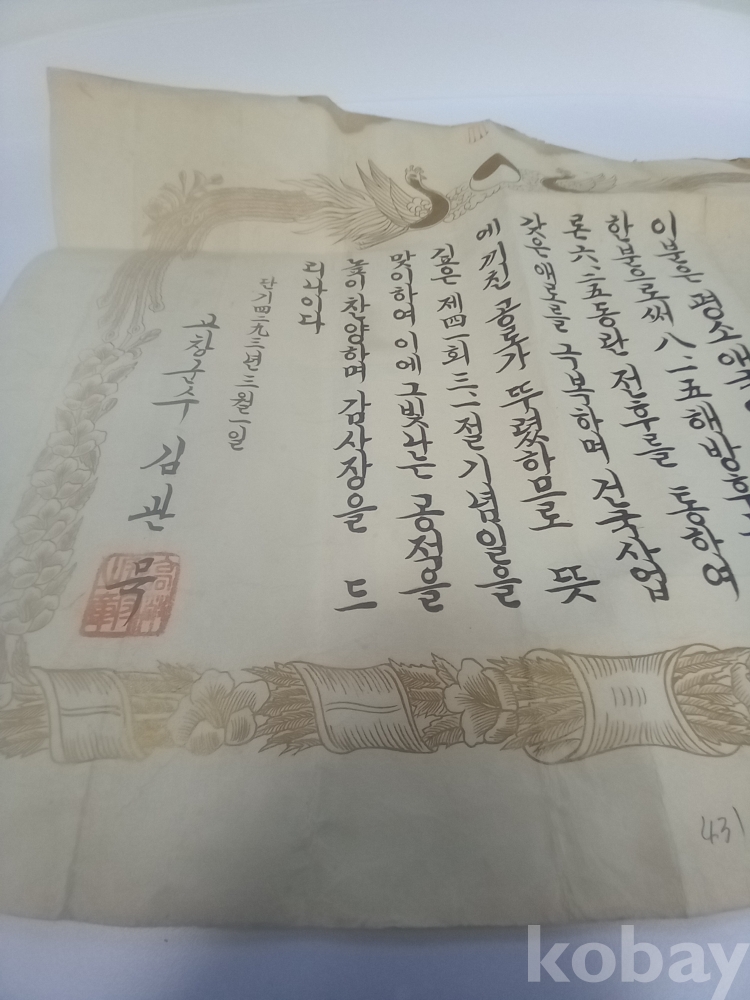 이분은 평소애
한분으로써 八·一五해방후
론 六·二五동란 전후를 통하여
갖은애로를 극복하며 건국사업
에 끼친 공로가 뚜렷하므로 뜻
깊은 제四一회 三·一절 기념일을
맞이하여 이에 그 빛나는 공적을
높이 찬양하며 감사장을 드
리나이다
단기四二九三년 三월 一일
고창군수 김관묵
431
kobay